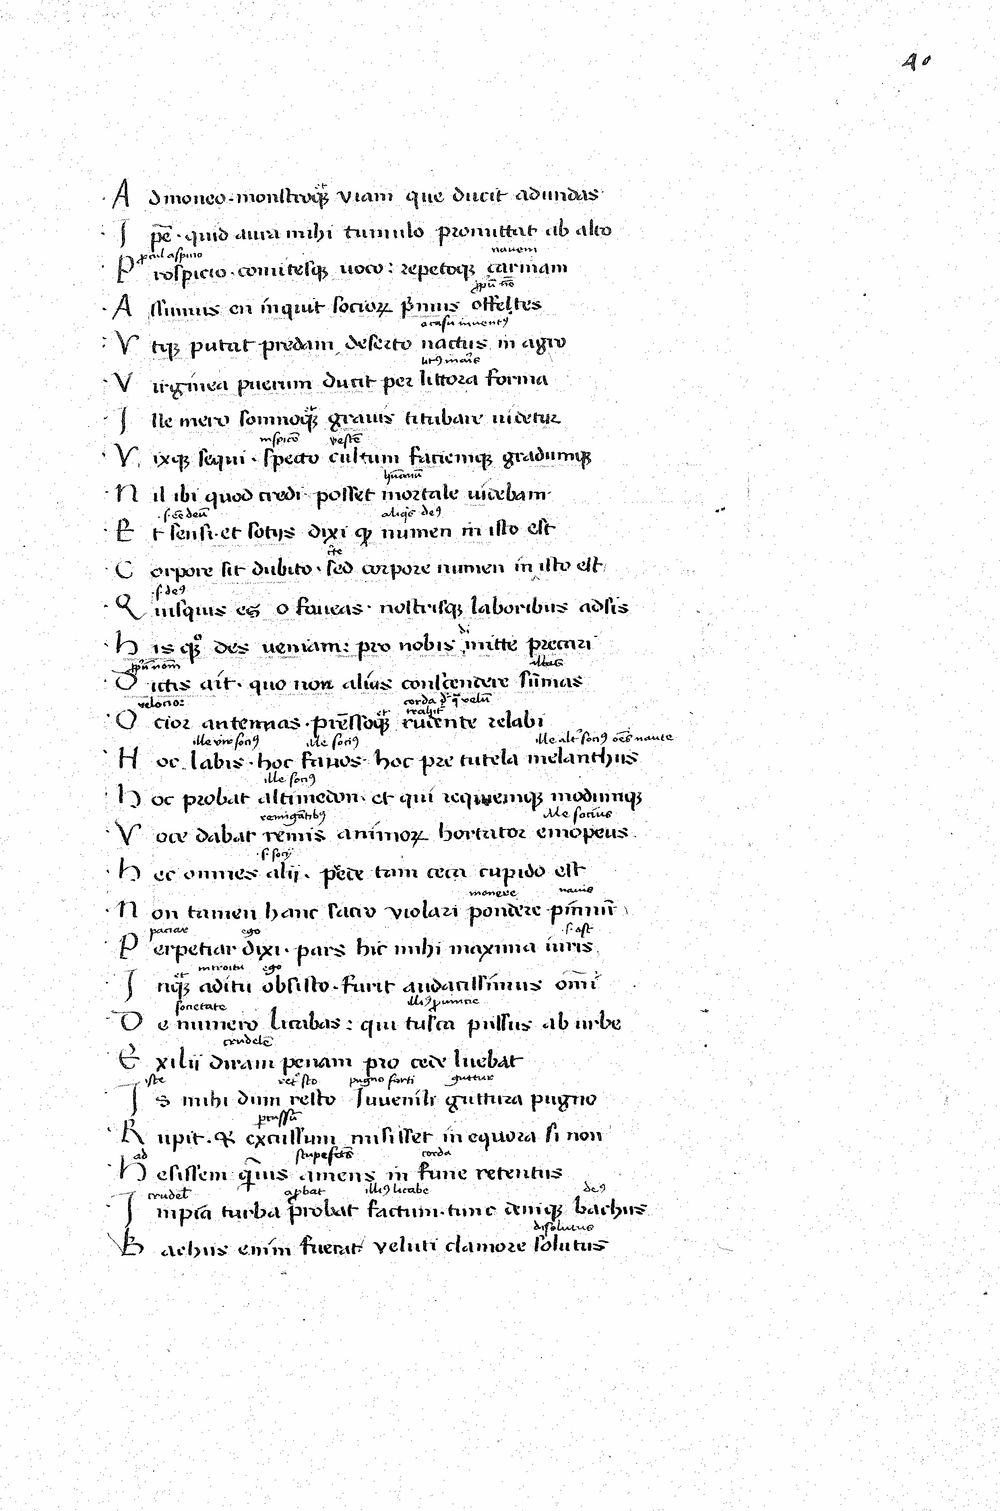 40
A dmoneo · monstroqꝫ viam que ducit adundas
I pē · quid aura mihi tumulo promittat ab alto
P rospicio · comitesqꝫ uoco : repetoqꝫ carinam
navem
A ssumus en inquit socioꝝ pͥmus offeltes
V tqꝫ putat predam deserto nactus in agro
V irginea puerum ducit per littora forma
I lle mero somnoqꝫ gravis titubare uidetur
V ixqꝫ sequi · specto cultum faciemqꝫ gradumqꝫ
N il ibi quod credi posset mortale uidebam
E t sensi · et sotijs dixi ꝙ numen in isto est
C orpore sit dubito · sed corpore numen in isto est
Q uisquis es o faveas · nostrisqꝫ laboribus adsis
H is qꝫ des veniam : pro nobis mitte precari
D ictis ait · quo non alius conscendere sūmas
velocior
corda
O cior antennas · prēssoqꝫ rudente relabi
H oc labis · hoc favos · hoc pre tutela melanthus
H oc probat altimedon · et qui requiemqꝫ modumqꝫ
V oce dabat remis animoꝝ hortator emopeus
H ec omnes alij · prede tam ceca cupido est
monere navis
N on tamen hanc sacro violari pondere pinnū
paciar ego
P erpetiar dixi · pars hic mihi maxima iuris
introitu ego
I nqꝫ aditu obsisto · furit audacissimus omī
societate
D e numero licabas : qui tusca pulsus ab urbe
crudelē
E xilij diram penam pro cede luebat
iste pugno forti guttur
I s mihi dum resto Iuvenili guttura pugno
R upit · et excussum misisset in equora si non
ad corda
H esissem qͣmis amens in fune retentus
I mpia turba probat factum · tunc deniqꝫ bachus
disolutus
B achus enim fuerat veluti clamore solutus